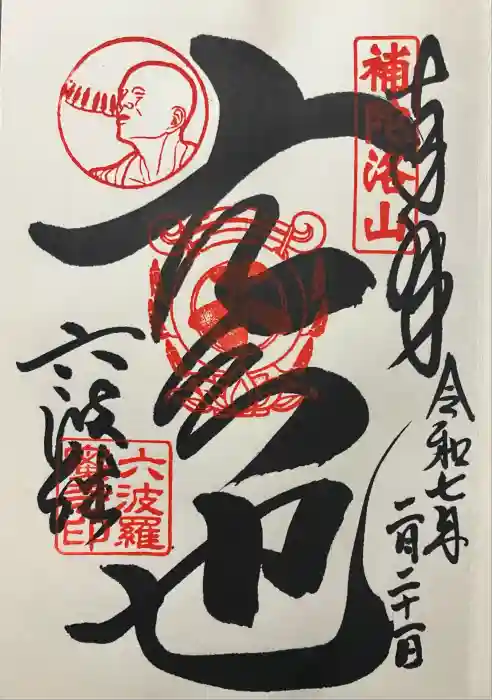 奉拝
補陀洛山
令和七年
二月二十一日
空也
六波羅
六波羅
蜜寺印